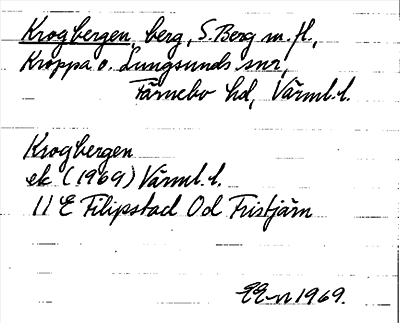 Krogbergen, berg, S. Berg m. fl.,
Kroppa o. Lungsunds snr,
Färnebo hd, Värml. l.
Krogbergen
ek (1969) Värml. l.
11 E Filipstad 0d Fristjärn
EEn 1969.